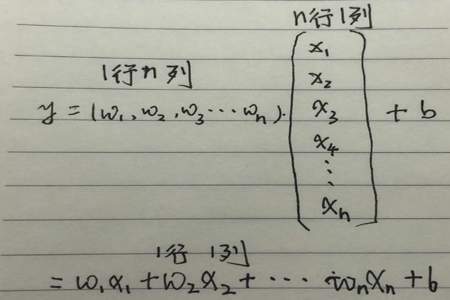 n行1列
1行n列
y = (w₁, w₂, w₃ ⋯ wₙ) · (x₁ x₂ x₃ x₄ ⋮ xₙ) + b
1行 1列
= w₁x₁ + w₂x₂ + ⋯ + wₙxₙ + b